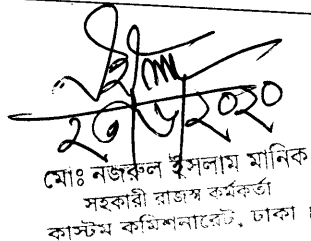 ২৩/৬/২০২০
মোঃ নজরুল ইসলাম মানিক
সহকারী রাজস্ব কর্মকর্তা
কাস্টম কমিশনারেট, ঢাকা।